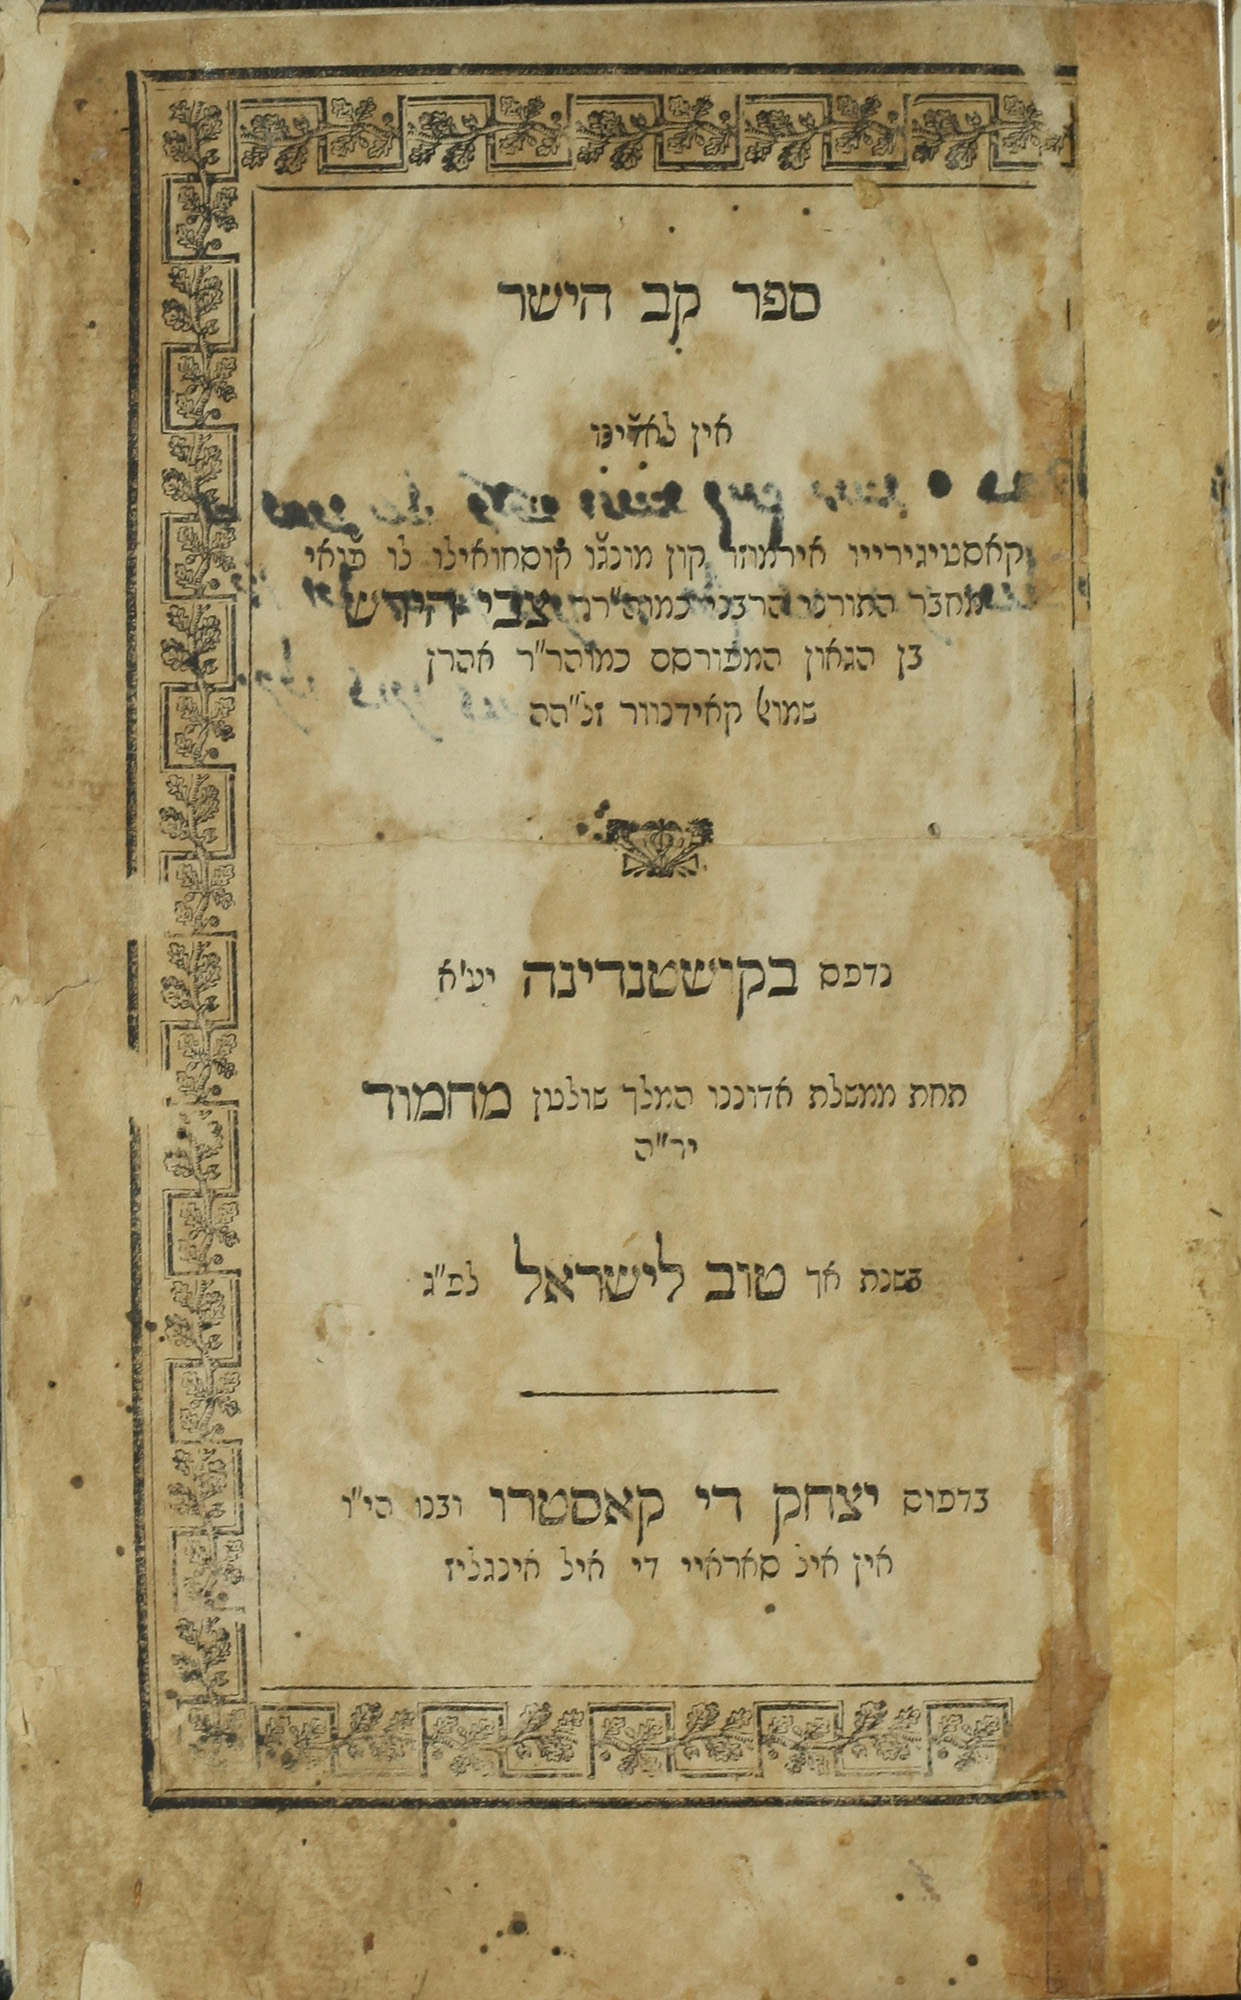 ספר קב הישר
אין לאדינו
קאסטיגירייו אירמוזו קון מונג'ו קוסחואילו לו פ'ואי
מחבר התורני הרבני כמוה״רר צבי הירש
בן הגאון המפורסם כמוהר״ר אהרן
שמואל קאידנוור זל״הה
נדפס בקושטנדינה יע'א
תחת ממשלת אדוננו המלך שולטן מחמוד
יר״ה
בשנת אך טוב לישראל לפ״ג
בדפוס יצחק די קאסטרו ובנו הי״ו
אין איל סאראיי די איל אינגליז